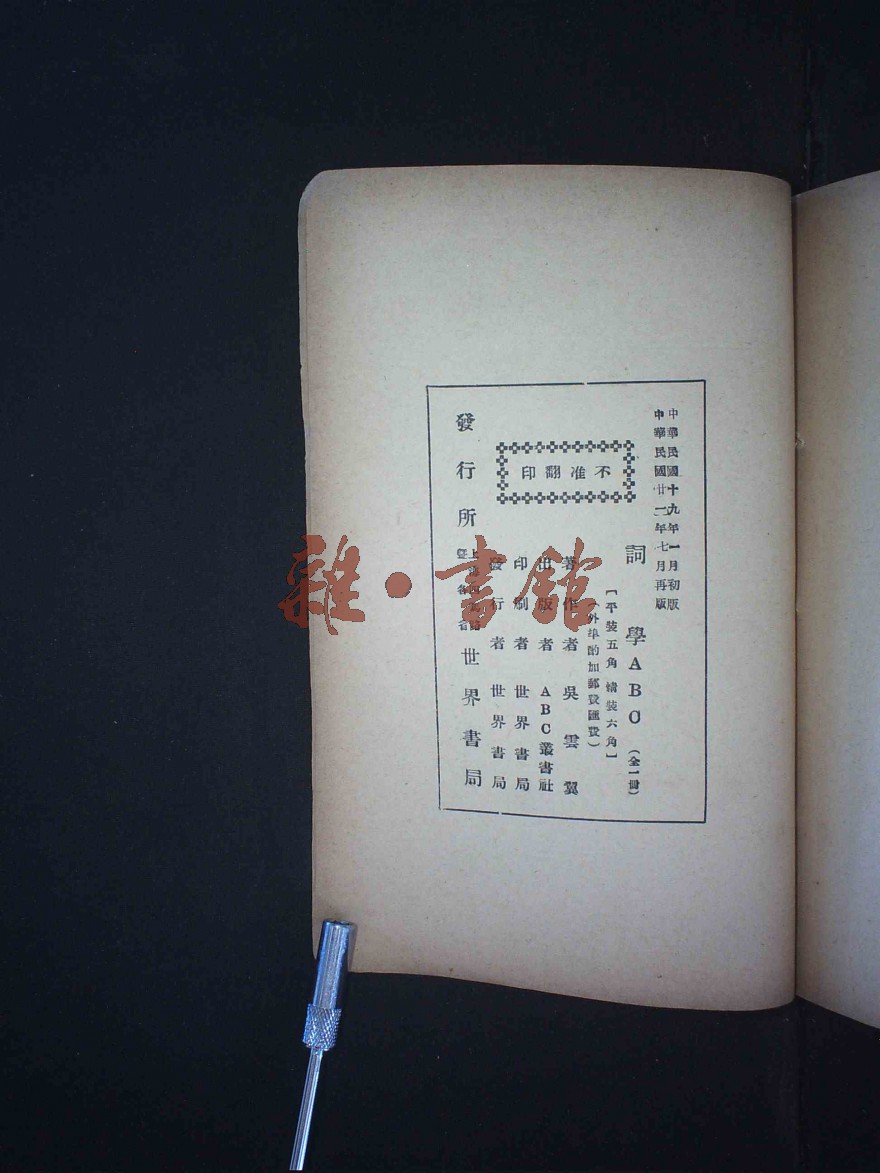 中華民國十九年一月初版
中華民國廿一年七月再版
詞學ABC（全一冊）
【平裝五角 精裝六角】
（外埠酌加郵費匯費）
不准翻印
著作者 吳雲翼
出版者 ABC叢書社
印刷者 世界書局
發行者 世界書局
發行所 上海
世界書局
雜·書館